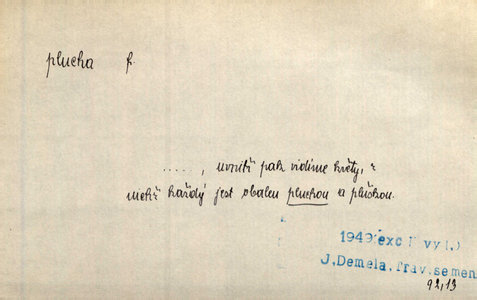 plucha f.
...., uvnitř pak vidíme květy, z
nichž každý jest obalen pluchou a pluškou.
1949 exc
J. Demela, Tráv. semen
92,13